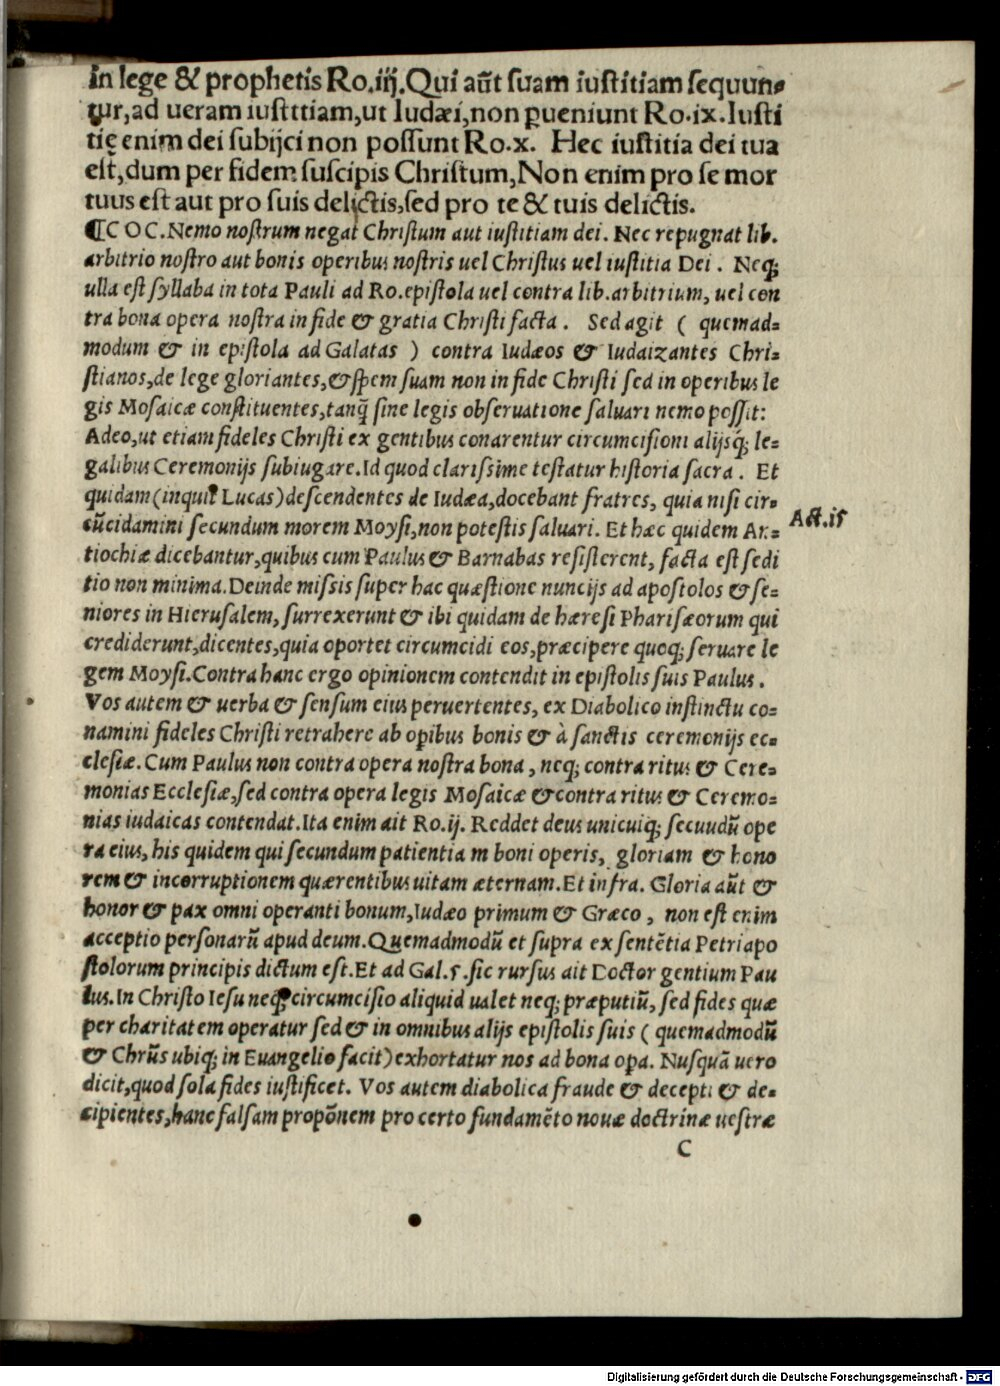 in lege & prophetis Ro.iij. Qui aūt suam iustitiam sequun⸗
tur, ad ueram iustttiam, ut Iudæi, non ꝑueniunt Ro.ix. Iusti
tię enim dei subijci non possunt Ro.x. Hec iustitia dei tua
est, dum per fidem suscipis Christum, Non enim pro se mor
tuus est aut pro suis delictis, sed pro te & tuis delictis.
¶COC. Nemo nostrum negat Christum aut iustitiam dei. Nec repugnat lib.
arbitrio nostro aut bonis operibus nostris uel Christus uel iustitia Dei. Neq;
ulla est syllaba in tota Pauli ad Ro. epistola uel contra lib. arbitrium, uel con
tra bona opera nostra in fide & gratia Christi facta. Sed agit ( quemad⸗
modum & in epistola ad Galatas ) contra Iudæos & Iudaizantes Chri⸗
stianos, de lege gloriantes, & spem suam non in fide Christi sed in operibus le
gis Mosaicæ constituentes, tanq̃ sine legis obseruatione saluari nemo possit:
Adeo, ut etiam fideles Christi ex gentibus conarentur circumcisioni alijsq; le⸗
galibus Ceremonijs subiugare. Id quod clarissime testatur historia sacra. Et
quidam (inquit Lucas) descendentes de Iudæa, docebant fratres, quia nisi cir⸗
cūcidamini secundum morem Moysi, non potestis saluari. Et hæc quidem An⸗
tiochiæ dicebantur, quibus cum Paulus & Barnabas resisterent, facta est sedi
tio non minima. Deinde missis super hac quæstione nuncijs ad apostolos & se⸗
niores in Hierusalem, surrexerunt & ibi quidam de hæresi Pharisæorum qui
crediderunt, dicentes, quia oportet circumcidi eos, præcipere quoq; seruare le
gem Moysi. Contra hanc ergo opinionem contendit in epistolis suis Paulus.
Vos autem & uerba & sensum eius peruertentes, ex Diabolico instinctu co⸗
namini fideles Christi retrahere ab oꝑibus bonis & à sanctis ceremonijs ec⸗
clesiæ. Cum Paulus non contra opera nostra bona, neq; contra ritus & Cere⸗
monias Ecclesiæ, sed contra opera legis Mosaicæ & contra ritus & Ceremo⸗
nias iudaicas contendat. Ita enim ait Ro.ij. Reddet deus unicuiq; secuudū ope
ra eius, his quidem qui secundum patientia m boni operis, gloriam & hono
rem & incorruptionem quærentibus uitam æternam. Et infra. Gloria aūt &
honor & pax omni operanti bonum, Iudæo primum & Græco, non est enim
acceptio personarū apud deum. Quemadmodū et supra ex sentētia Petri apo
stolorum principis dictum est. Et ad Gal.5. sic rursus ait Doctor gentium Pau
lus. In Christo Iesu neq; circumcisio aliquid ualet neq; præputiū, sed fides quæ
per charitatem operatur sed & in omnibus alijs epistolis suis ( quemadmodū
& Chrūs ubiq; in Euangelio facit) exhortatur nos ad bona oꝑa. Nusquā uero
dicit, quod sola fides iustificet. Vos autem diabolica fraude & decepti & de⸗
cipientes, hanc falsam propōnem pro certo fundamēto nouæ doctrinæ uestræ
C
Act.15
Digitalisierung gefördert durch die Deutsche Forschungsgemeinschaft - DFG